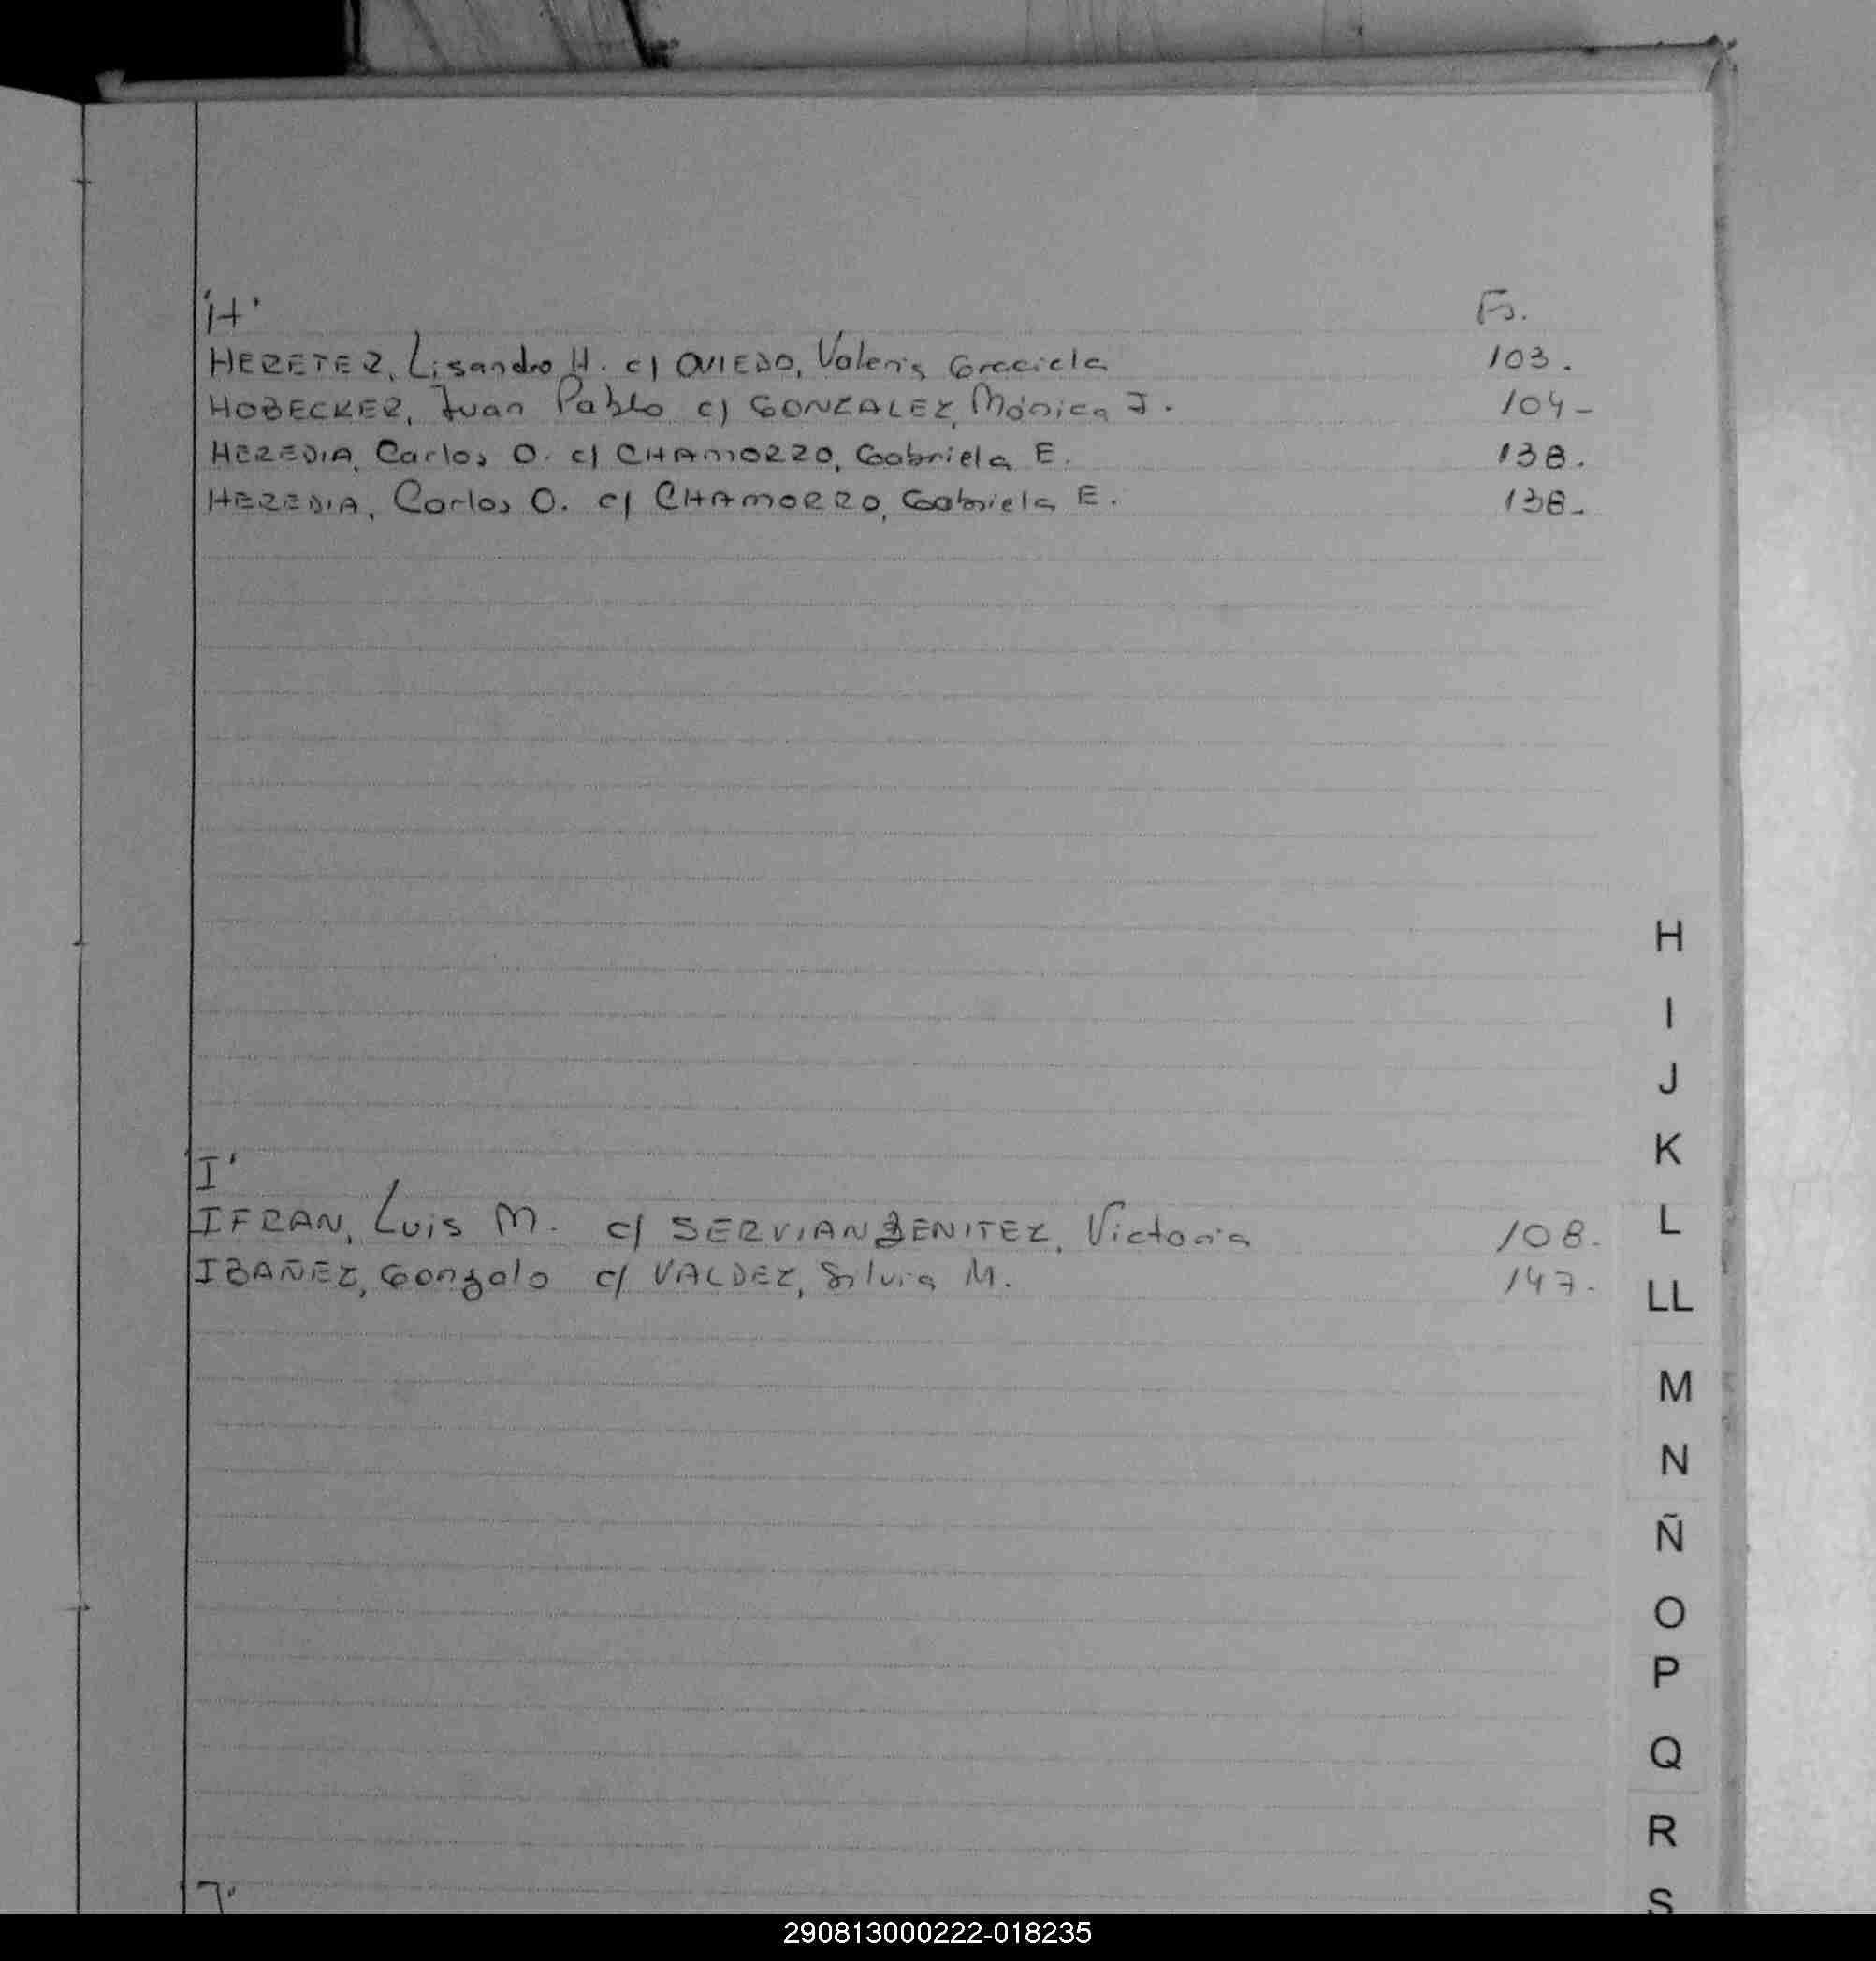 'H' Fs.
HERETER, Lisandro H. c/ OVIEDO, Valeria Graciela 103.
HOBECKER, Juan Pablo c/ GONZALEZ, Mónica J. 104-
HEREDIA, Carlos O. c/ CHAMORRO, Gabriela E. 138.
HEREDIA, Carlos O. c/ CHAMORRO, Gabriela E. 138-
I'
IFRAN, Luis M. c/ SERVIAN BENITEZ, Victoria 108.
IBAÑEZ, Gonzalo c/ VALDEZ, Silvia M. 147.
H
I
J
K
L
LL
M
N
Ñ
O
P
Q
R
S
290813000222-018235